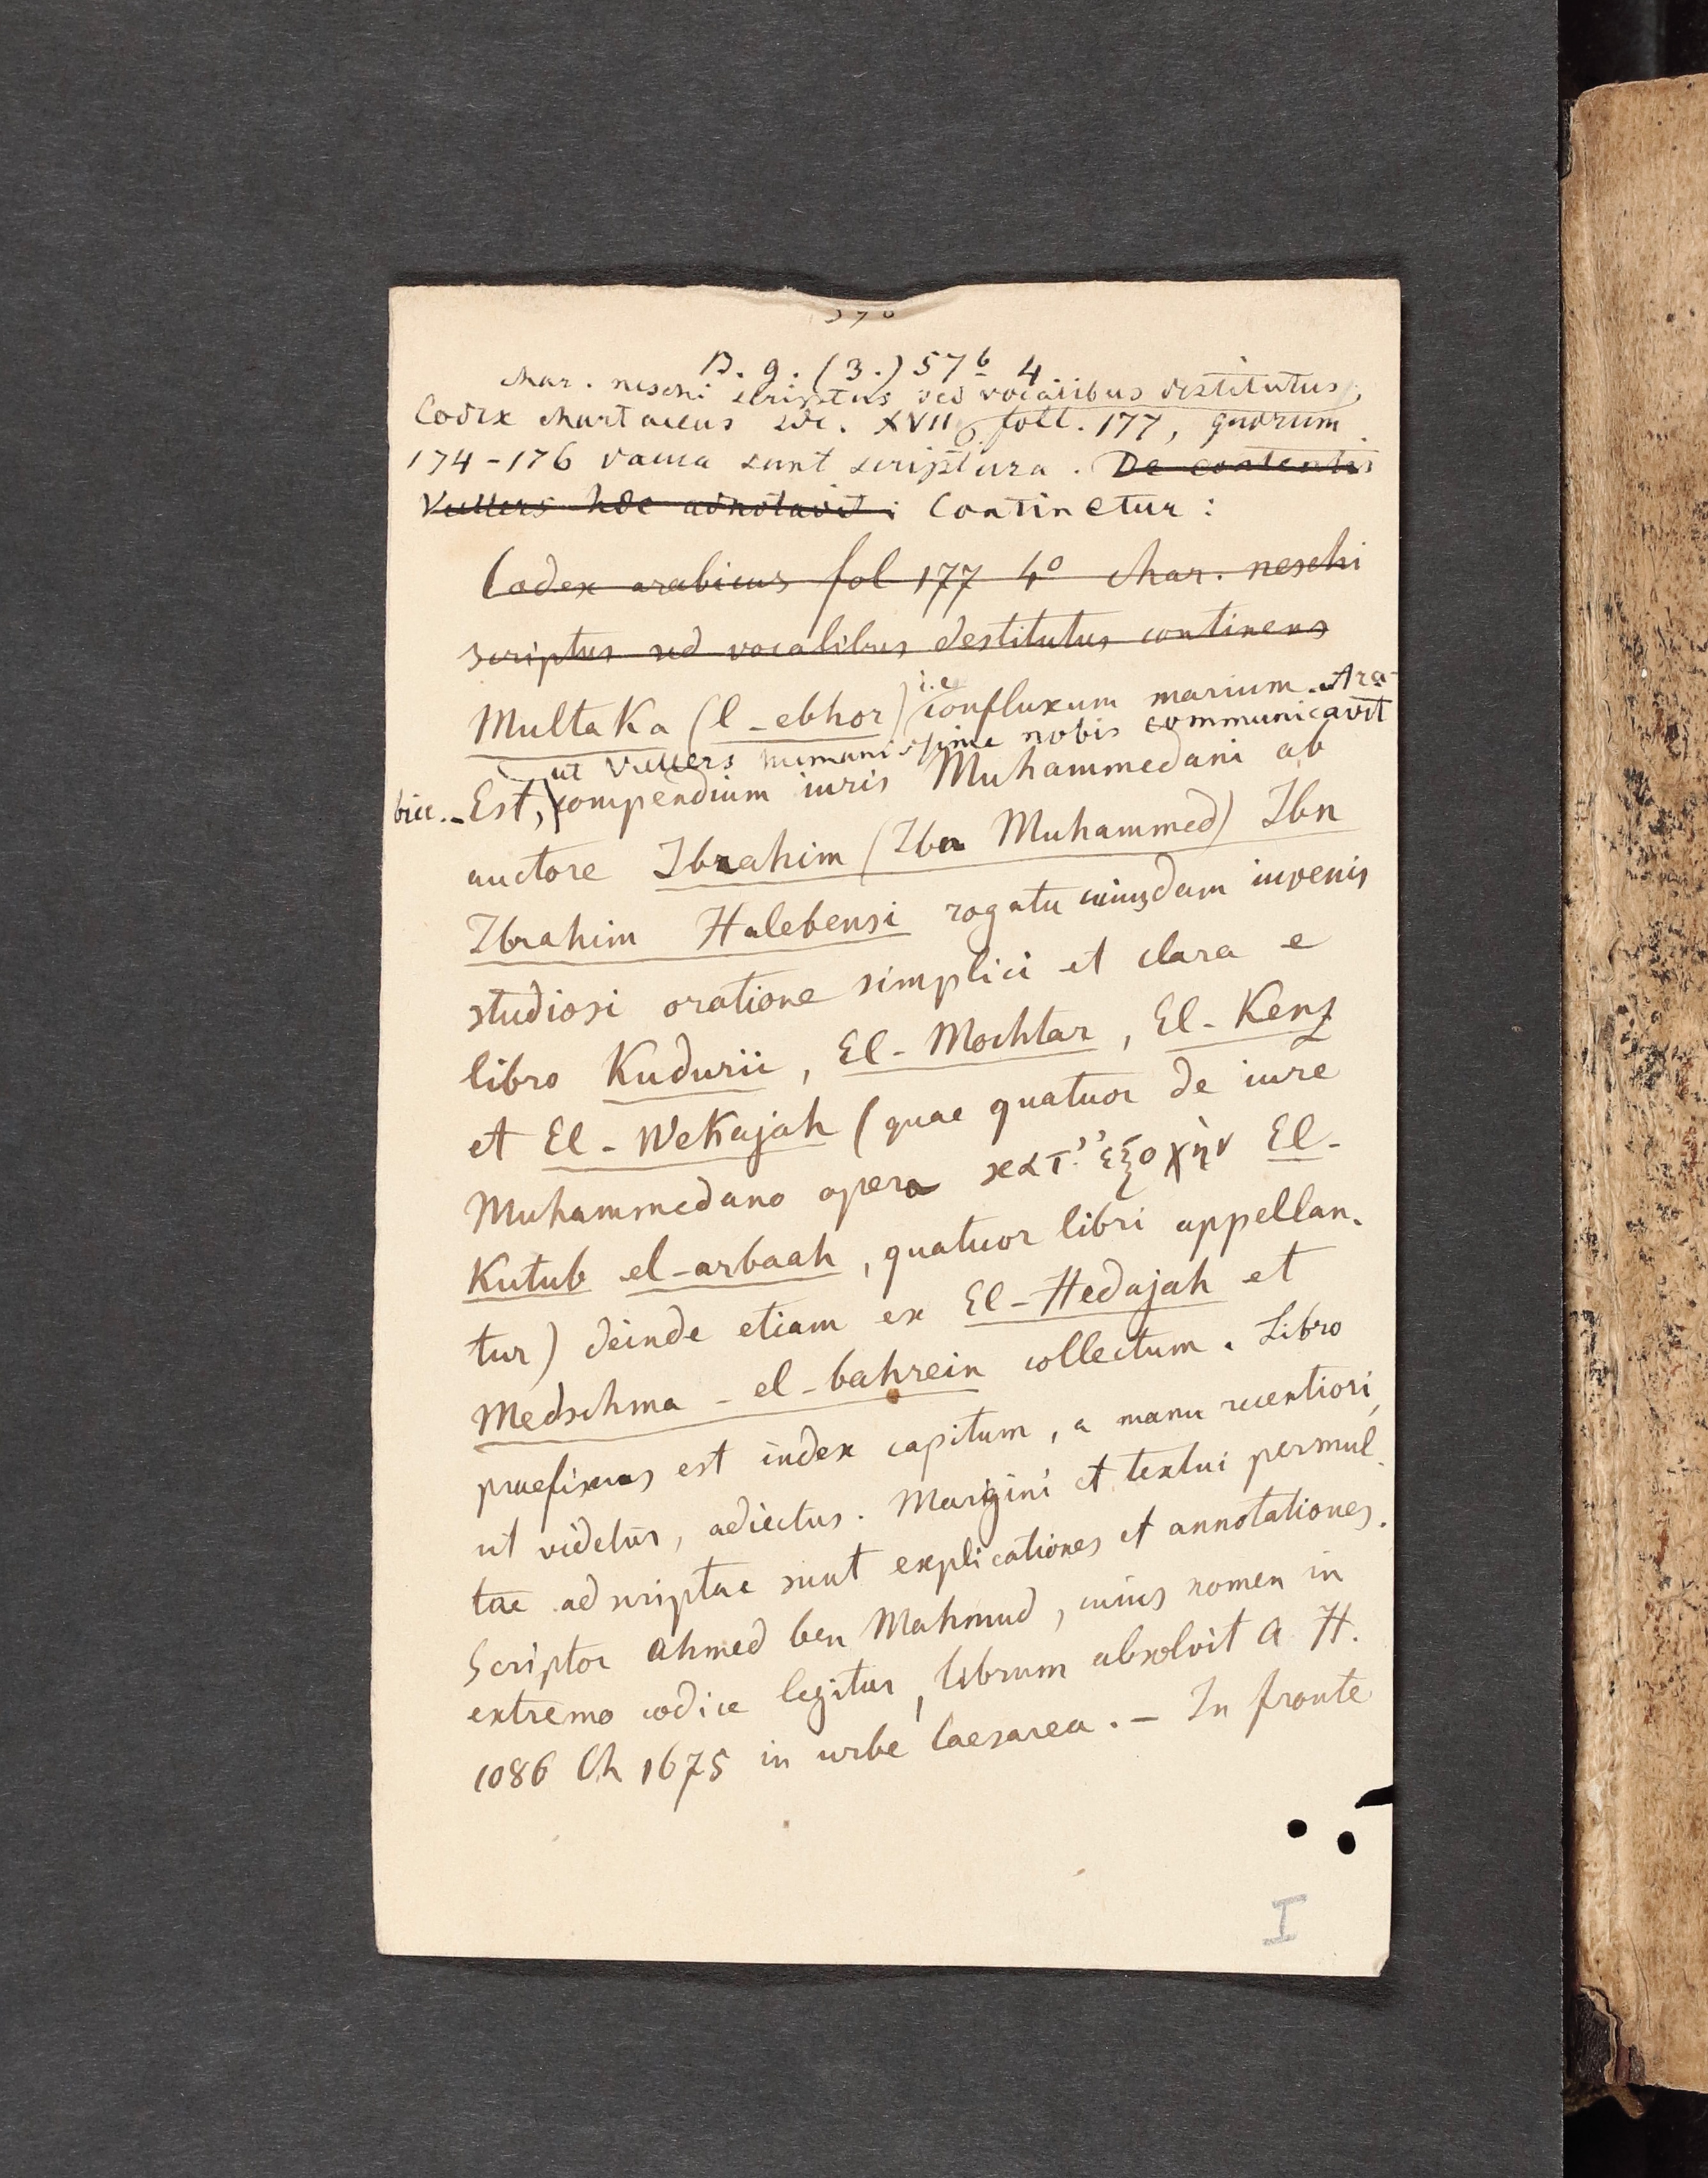 B. g. (3.) 57b 4
char. neschi scriptus sed vocalibus destitutus,
Codex chartaceus saec. XVII foll. 177, quorum
174-176 vacua sunt scriptura. De contentis
Vullers haec adnotavit: Continetur:
Codex arabicus fol 177 4º char. neschi
scriptus sed vocalibus destitutus continens
Multaka (l-ebhor) i.e. confluxum marium. Ara-
ut Vullers humanissime nobis communicavit
bice.- Est, compendium iuris Muhammedani ab
auctore Ibrahim (Ibn Muhammed) Ibn
Ibrahim Halebensi rogatu cuiusdam iuvenis
studiosi oratione simplici et clara e
libro Kudurii, El-Mochtar, El-Kenz
et El-Wekajah (quae quatuor de iure
Muhammedano opera κατ' ἐξοχὴν El-
Kutub el-arbaah, quatuor libri appellan-
tur) deinde etiam ex El-Hedajah et
Medschma-el-bahrein collectum. Libro
praefixus est index capitum, a manu recentiori,
ut videtur, adiectus. Margini et textui permul-
tae adscriptae sunt explicationes et annotationes.
Scriptor Ahmed ben Mahmud, cuius nomen in
extremo codice legitur, librum absolvit A H.
1086 Ch 1675 in urbe Caesarea. - In fronte
I